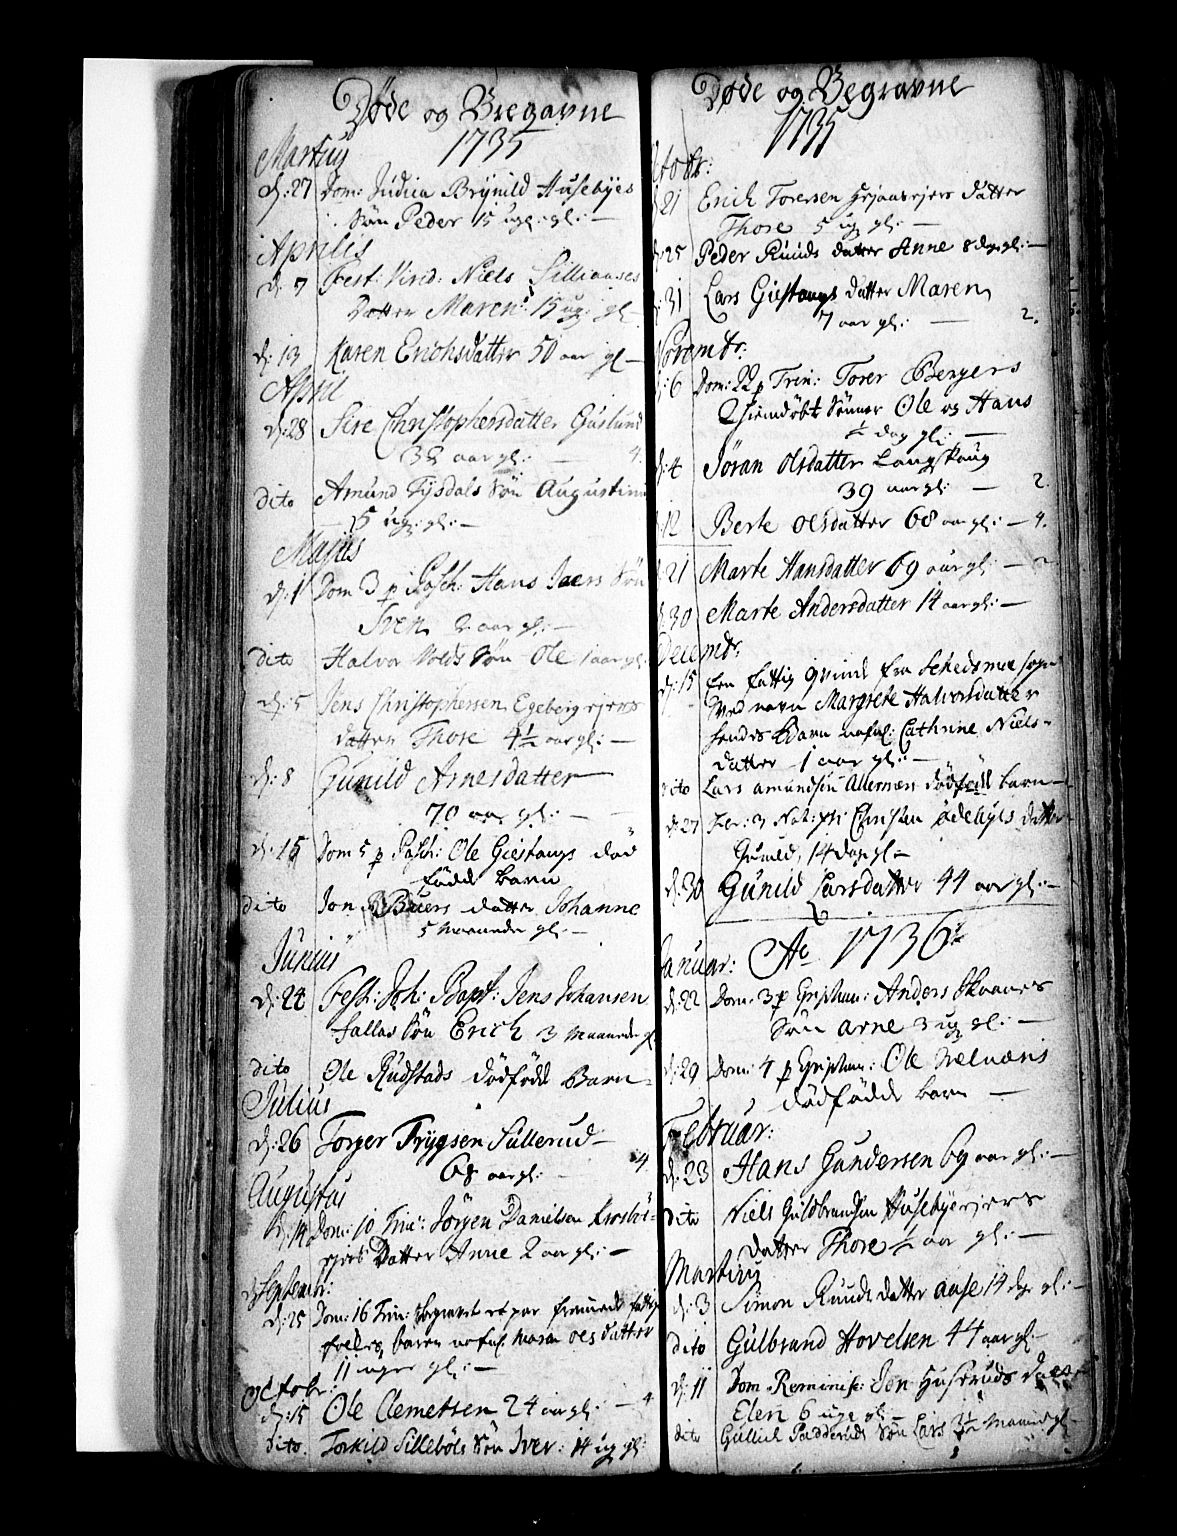 Døde og Bregavne
1735
Martius
d: 27 Dom: Judica Brynild Husebyes
Søn Peder 15 ug: gl: —
Aprilis
d: 7 Fest: Virid: Niels Sillianses
Datter Maren 15 ug: gl—
d: 13 Karen Erichsdatter 50 aar gl—
April
d: 28 Sire Christophersdatter Gaslund
38 aar gl: — 4.
dito Amund Tysdals Søn Augustinus
5 ug: gl: —
Majus
d: 1 Dom 3 p Pasch: Hans Ivers Søn
Iven 2 aar gl: —
dito Halvor Volds Søn Ole 1 aar gl:
d: 5 Jens Christophersen Egebergejers
datter Thore 4½ aar gl: —
d: 8 Gunild Arnesdatter
70 aar gl: —
d: 15 Dom 5 p Pasch: Ole Giestangs død
fødde barn
dito Jon Buers datter Johanne
5 Maaneder gl: —
Junius
d: 24 Fest: Joh: Bapt: Jens Johansen
Fallas Søn Erich 3 Maaneder gl
dito Ole Rudstads dødfødde Barn —
Julius
d: 26 Torger Trygsen Sullerud —
68 aar gl: — 4.
Augustus
d: 14 Dom: 10 Trin: Jørgen Danielsen
Datter Anne 2 aar gl: —
Septembr:
d: 25 Dom: 16 Trin: et par fremmede fattig
folkes barn nafnl: Maren Olsdatter
11 uger gl: —
Octobr:
d: 15 Ole Clemetsen 24 aar gl: — 4
dito Torkild Sillebøls Søn Iver: 14 ug gl:
Døde og Begravne
1735
Octobr:
d: 21 Erich Toresen datter
Thore 5 ug gl: —
d: 25 Peder Ruuds datter Anne 8 dg gl: —
d: 31 Lars Giestangs datter Maren
7 aar gl: — 2.
Novembr:
d: 6 Dom: 22 p Trin: Torer Bergers
2 hiemdøbt Sønner Ole og Hans
½ dag gl: —
d: 4 Jøran Olsdatter Langskaug
39 aar gl: — 2
d: 12 Berte Olsdatter 68 aar gl: — 4.
d: 21 Marte Hansdatter 69 aar gl: — 2
d: 30 Marte Andersdatter 14 aar gl: —
Decembr:
d: 15 Een fattig qvinde fra Schedsmoe sogn
Ved navn Margrete Halvorsdatter
hendes Barn nafnl: Cathrine Niels-
datter 1 aar gl: —
dito Lars Amundsen dødfødt barn —
d: 27 Fer: 3 Nat: Xti Christen Ødebyes datter
Gunild, 14 dag gl —
d: 30 Gunild Larsdatter 44 aar gl: —
Januar: Ao 1736
d: 22 Dom: 3 p Epiphan: Anders Skranes
Søn Arne 3 ug gl: —
d: 29 Dom: 4 p Epiphan: Ole
dødfødde barn —
Februar:
d: 23 Hans Gundersen 69 aar gl: —
dito Niels Guldbrandsen Husebyejers
datter Thore ½ aar gl: —
Martius
d: 3 Simon Ruuds datter Aase 14 dg gl: —
dito Gulbrand Hovelsen 44 aar gl —
d: 11 Dom Reminisc: Jon Husteruds datter
Elen 6 uge gl —
dito Gullich Padderuds Søn Lars 3½ Maaned gl —